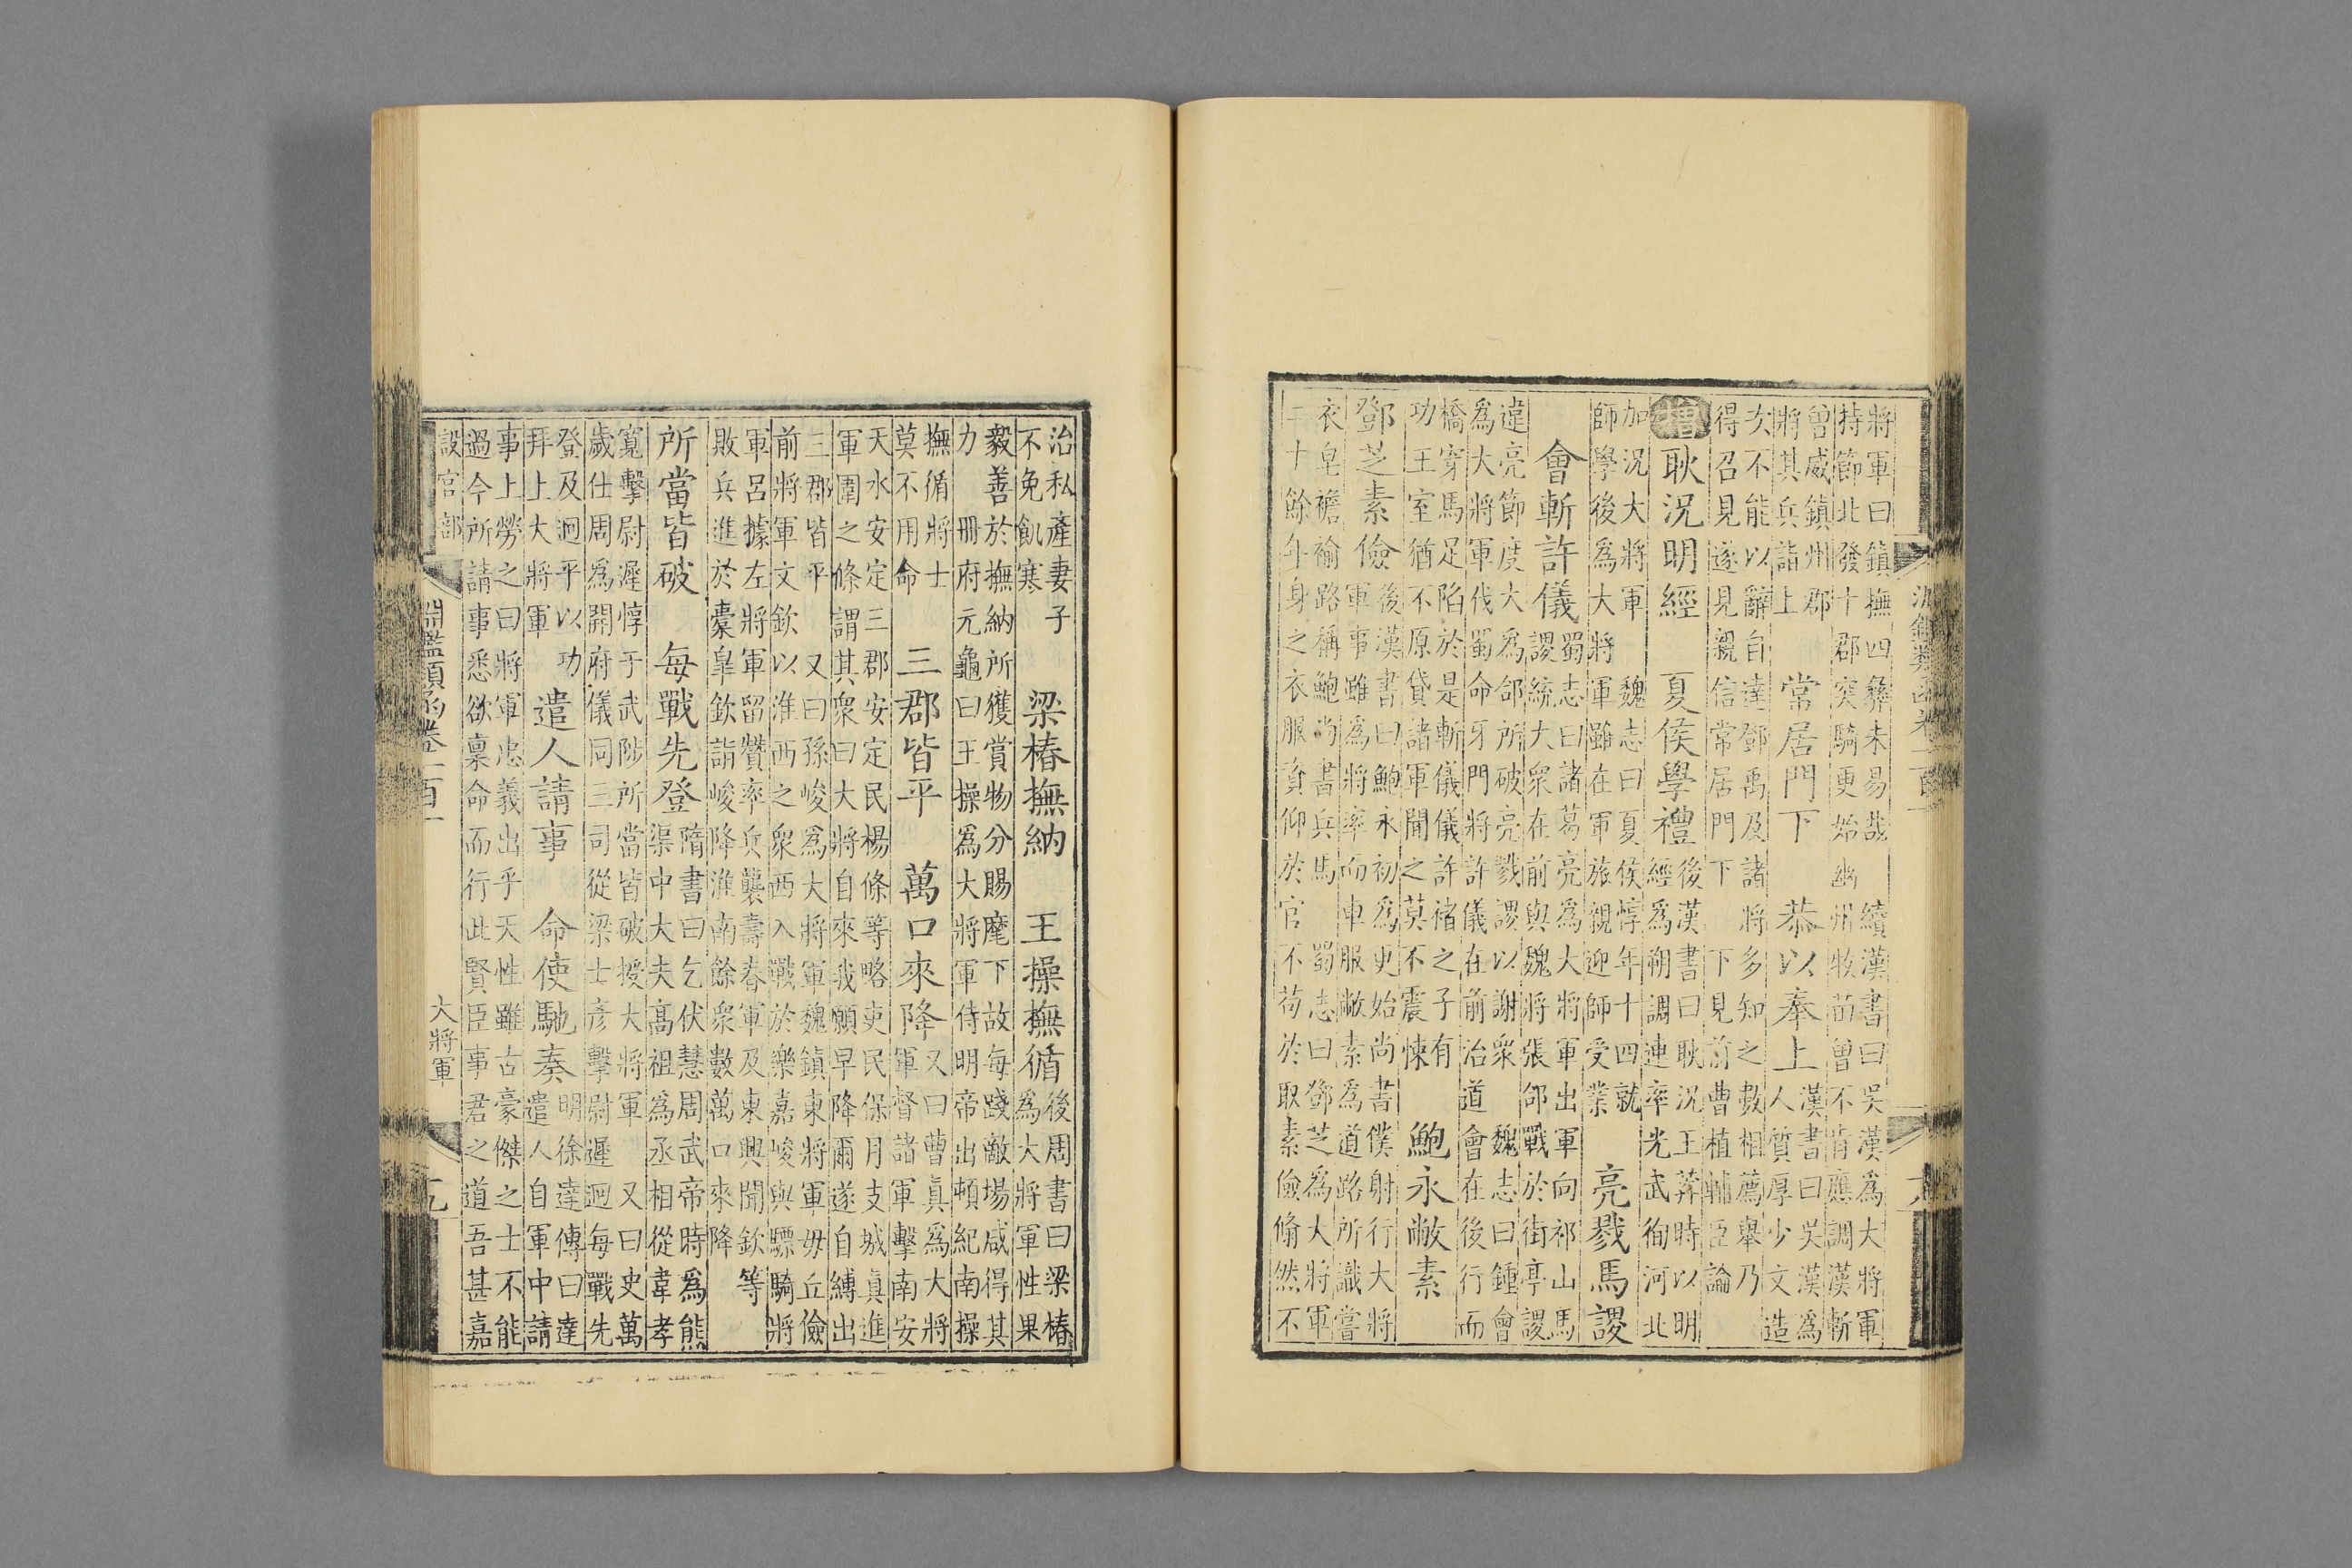 將軍曰鎮撫四彝未易哉　續漢書曰吳漢爲大將軍
持節北發十郡突騎更始幽州牧苗曾不肯應調漢斬
曾威鎮州郡
將其兵詣上
常居門下　恭以奉上
漢書曰吳漢爲
人質厚少文造
次不能以辭自達鄧禹及諸將多知之數相薦舉乃
得召見遂見親信常居門下　下見前曹植輔臣論
增　耿況明經　夏侯學禮
後漢書曰耿況王莽時以明
經爲朔調連率光武徇河北
加況大將軍　魏志曰夏侯惇年十四就
師學後爲大將軍雖在軍旅親迎師受業
亮戮馬謖
會斬許儀
蜀志曰諸葛亮爲大將軍出軍向祁山馬
謖統大衆在前與魏將張郃戰於街亭謖
違亮節度大爲郃所破亮戮謖以謝衆　魏志曰鍾會
爲大將軍伐蜀命牙門將許儀在前治道會在後行而
橋穿馬足陷於是斬儀儀許褚之子有
功王室猶不原貸諸軍聞之莫不震悚
鮑永敝素
鄧芝素儉
後漢書曰鮑永初爲吏始尚書僕射行大將
軍事雖爲將率而車服敝素爲道路所識嘗
衣皂襜褕路稱鮑尚書兵馬　蜀志曰鄧芝爲大將軍
二十餘年身之衣服資仰於官不苟於取素儉脩然不
治私產妻子
不免飢寒
梁椿撫納　王操撫循
後周書曰梁椿
爲大將軍性果
毅善於撫納所獲賞物分賜麾下故每踐敵場咸得其
力　冊府元龜曰王操爲大將軍侍明帝出頓紀南操
撫循將士
莫不用命
三郡皆平　萬口來降
又曰曹真爲大將
軍督諸軍擊南安
天水安定三郡安定民楊條等略吏民保月支城真進
軍圍之條謂其衆曰大將自來我願早降爾遂自縛出
三郡皆平　又曰孫峻爲大將軍魏鎮東將軍毋丘儉
前將軍文欽以淮西之衆西入戰於樂嘉峻與驃騎將
軍呂據左將軍留贊率兵襲壽春軍及東興聞欽等
敗兵進於橐皐欽詣峻降淮南餘衆數萬口來降
所當皆破　每戰先登
隋書曰乞伏慧周武帝時爲熊
渠中大夫高祖爲丞相從韋孝
寬擊尉遲惇于武陟所當皆破授大將軍　又曰史萬
歲仕周爲開府儀同三司從梁士彥擊尉遲迥每戰先
登及迥平以功
拜上大將軍
遣人請事　命使馳奏
明徐達傳曰達
遣人自軍中請
事上勞之曰將軍忠義出乎天性雖古豪傑之士不能
過今所請事悉欲稟命而行此賢臣事君之道吾甚嘉
設官部　淵鑑類函卷一百一　大將軍　九